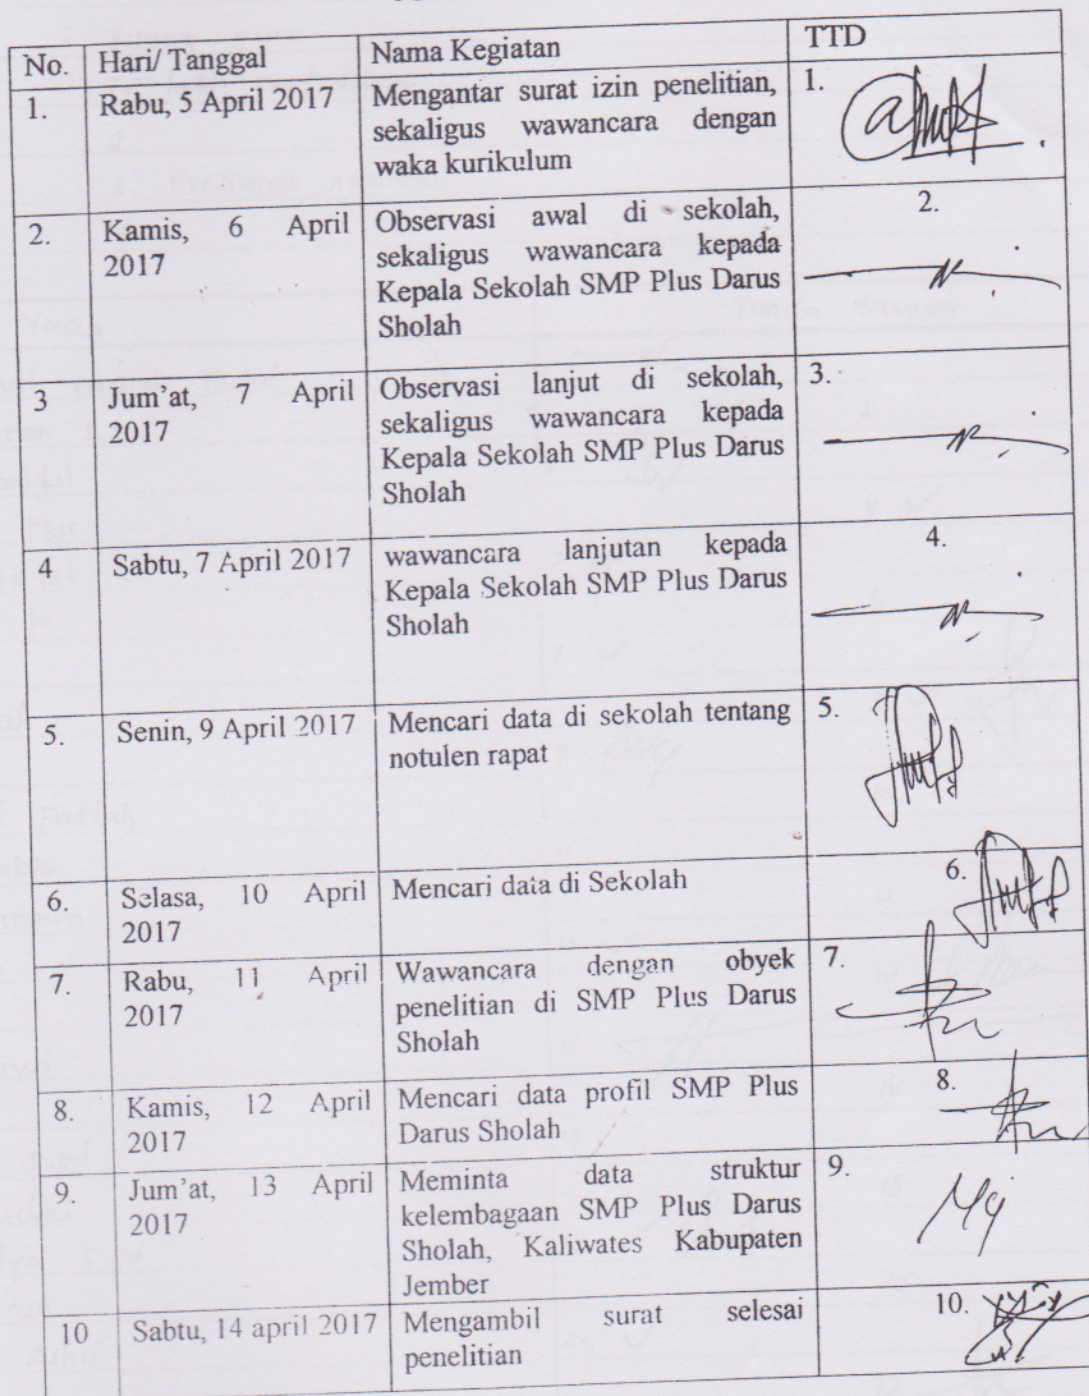 No. Hari/ Tanggal Nama Kegiatan TTD
1. Rabu, 5 April 2017 Mengantar surat izin penelitian, 1.
sekaligus wawancara dengan
waka kurikulum
2. Kamis, 6 April Observasi awal di sekolah, 2.
2017 sekaligus wawancara kepada
Kepala Sekolah SMP Plus Darus
Sholah
3 Jum'at, 7 April Observasi lanjut di sekolah, 3.
2017 sekaligus wawancara kepada
Kepala Sekolah SMP Plus Darus
Sholah
4 Sabtu, 7 April 2017 wawancara lanjutan kepada 4.
Kepala Sekolah SMP Plus Darus
Sholah
5. Senin, 9 April 2017 Mencari data di sekolah tentang 5.
notulen rapat
6. Selasa, 10 April Mencari data di Sekolah 6.
2017
7. Rabu, 11 April Wawancara dengan obyek 7.
2017 penelitian di SMP Plus Darus
Sholah
8. Kamis, 12 April Mencari data profil SMP Plus 8.
2017 Darus Sholah
9. Jum'at, 13 April Meminta data struktur 9.
2017 kelembagaan SMP Plus Darus
Sholah, Kaliwates Kabupaten
Jember
10 Sabtu, 14 april 2017 Mengambil surat selesai 10.
penelitian